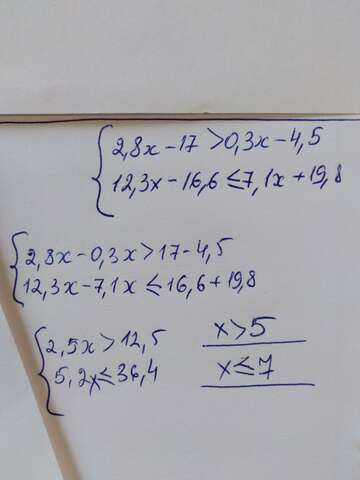 2,8x-17>0,3x-4,5
12,3x-16,6≤7,1x+19,8
2,8x-0,3x>17-4,5
12,3x-7,1x≤16,6+19,8
2,5x>12,5
5,2x≤36,4
x>5
x≤7